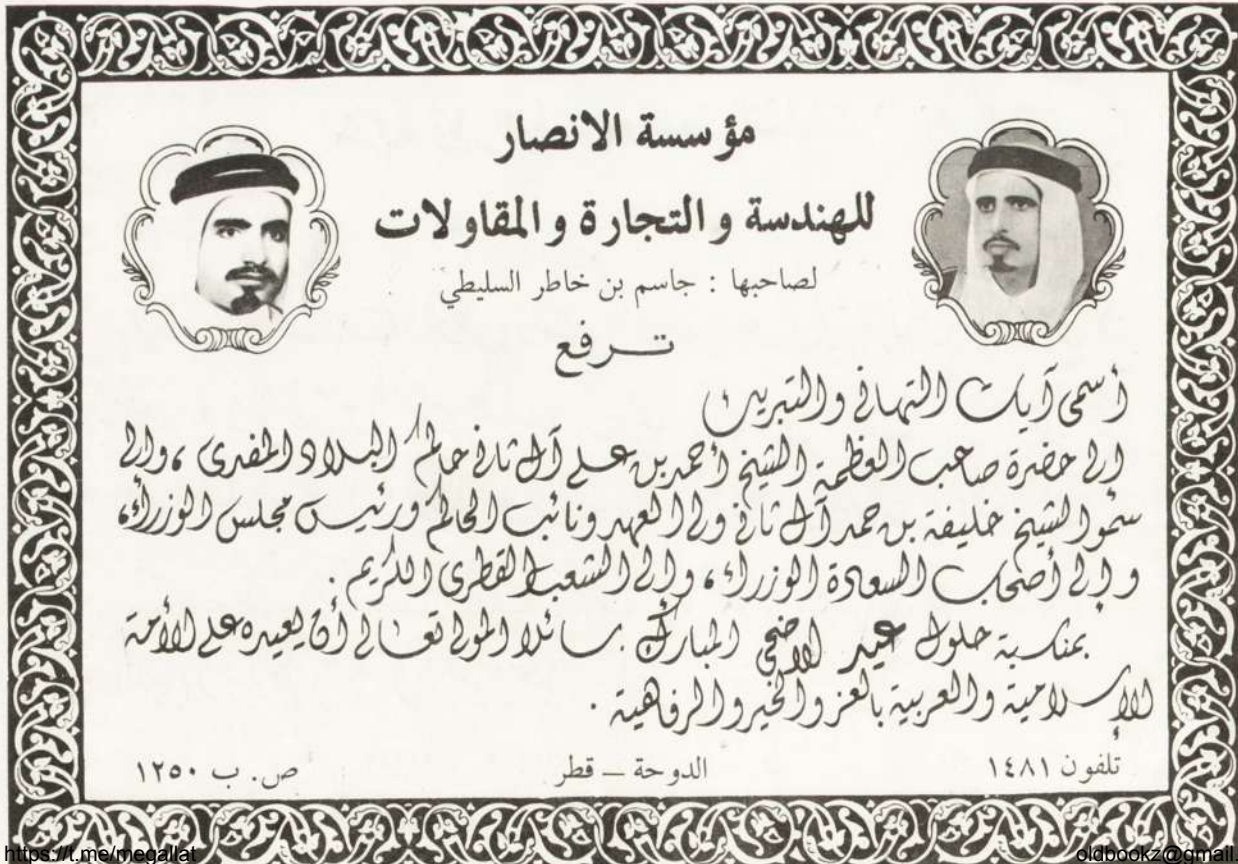 مؤسسة الانصار
للهندسة والتجارة والمقاولات
لصاحبها : جاسم بن خاطر السليطي
تــرفع
أسمى آيات التهاني والتبريك
إلى حضرة صاحب العظمة الشيخ أحمد بن علي آل ثاني حاكم البلاد المفدى ، وإلى
سمو الشيخ خليفة بن حمد آل ثاني ولي العهد ونائب الحاكم ورئيس مجلس الوزراء،
وإلى أصحاب السعادة الوزراء ، وإلى الشعب القطري الكريم .
بمناسبة حلول عيد الاضحى المبارك . سائلا المولى تعالى أن يعيده على الأمة
الإسلامية والعربية بالعز والخير والرفاهية .
تلفون ١٤٨١ الدوحة ــ قطر ص. ب ١٢٥٠
https://t.me/megallat oldbookz@gmail